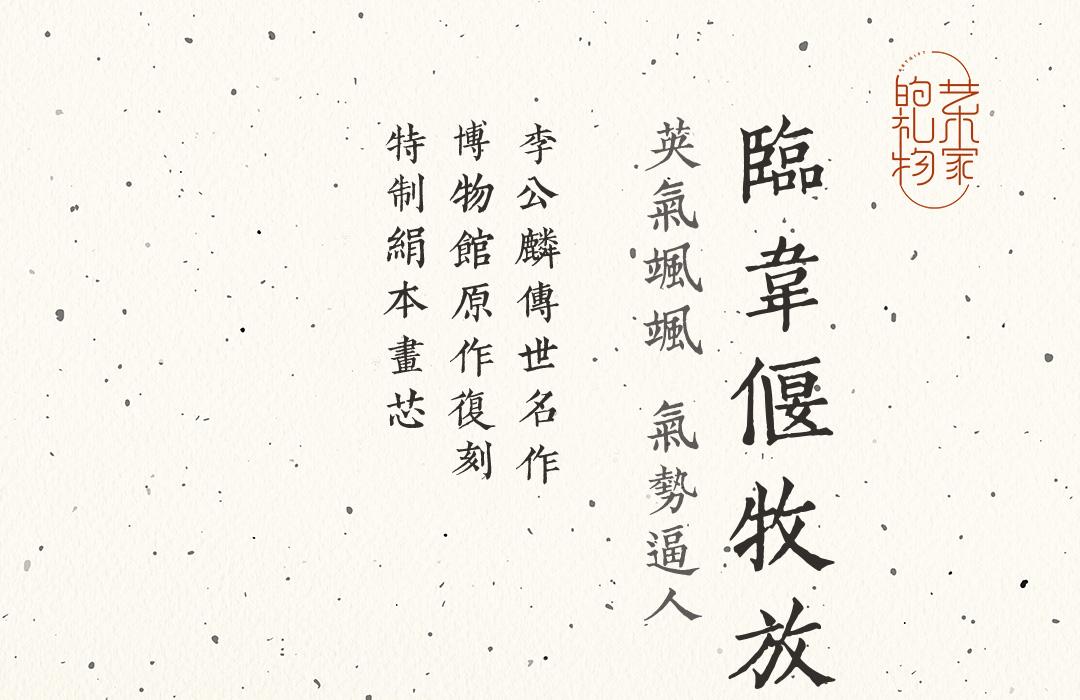 艺术家
的礼物
臨韋偃牧放
英氣颯颯 氣勢逼人
李公麟傳世名作
博物館原作復刻
特制絹本畫芯